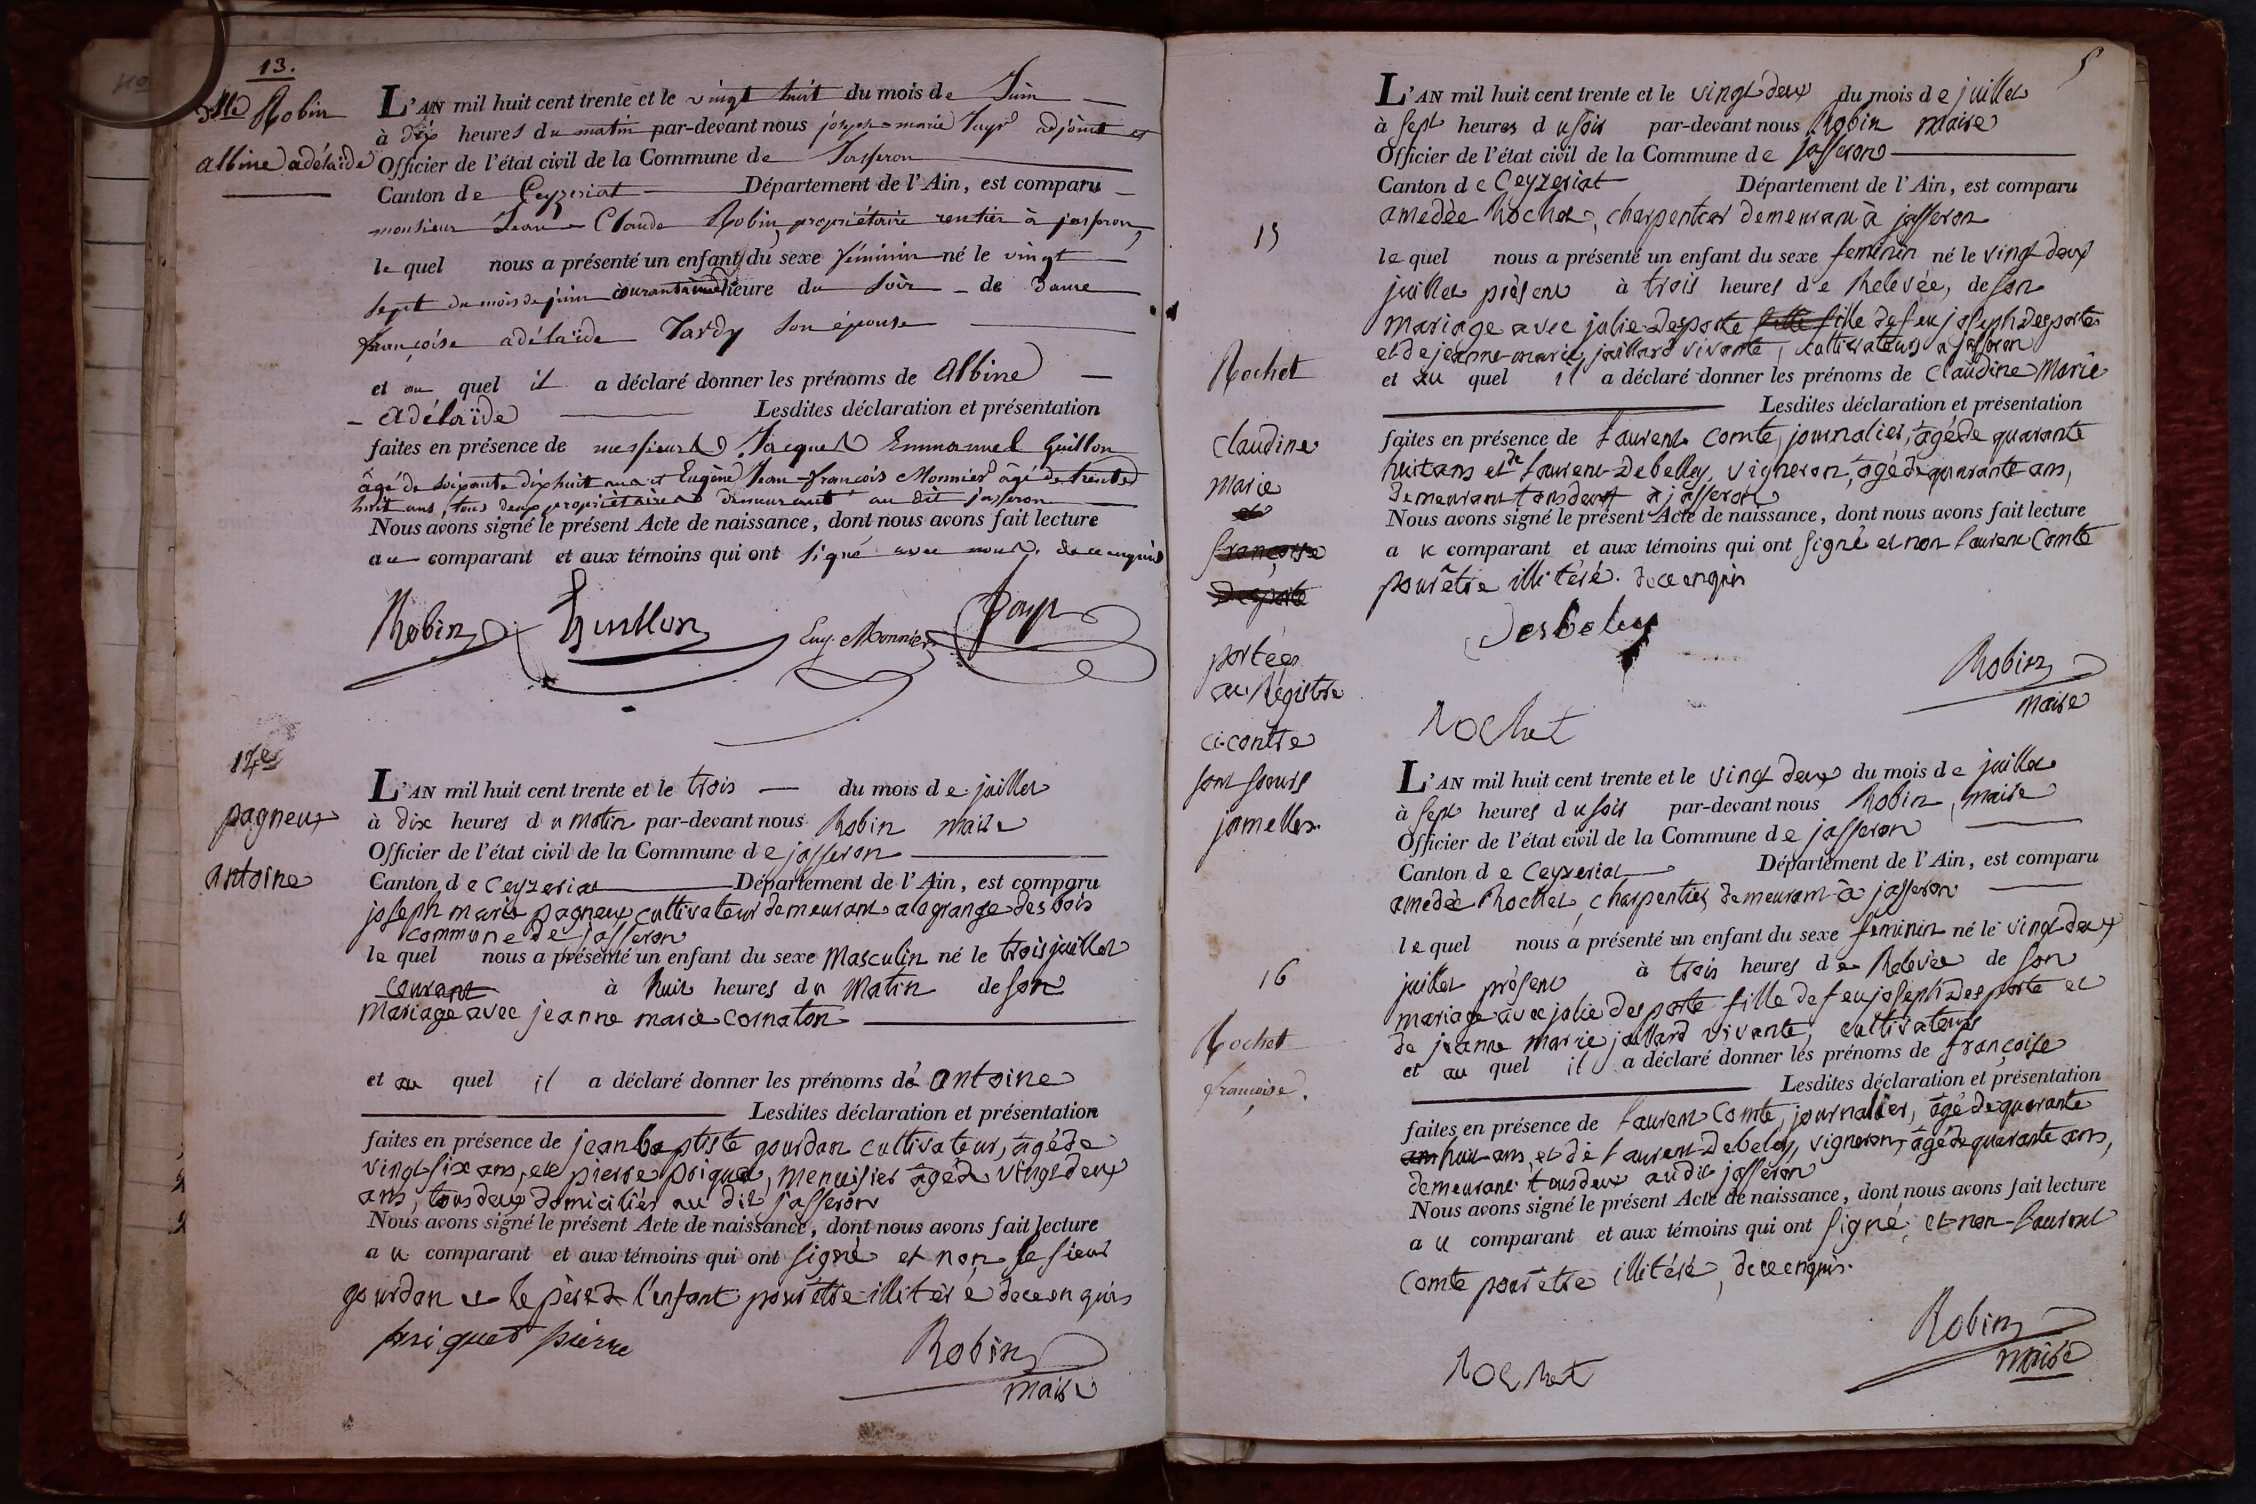 13.
Mlle Robin
albine adélaïde
L'AN mil huit cent trente et le vingt huit du mois de Juin
à dix heures du matin par-devant nous joseph-marie Tayr adjoint et
Officier de l'état civil de la Commune de Jasseron
Canton de Ceyzeriat Département de l'Ain, est comparu
monsieur Jean-Claude Robin, propriétaire rentier à jasseron,
le quel nous a présenté un enfant du sexe féminin né le vingt
sept du mois de juin courant à une heure du soir de dame
françoise adélaïde Tardy son épouse
et au quel il a déclaré donner les prénoms de Albine
- Adélaïde Lesdites déclaration et présentation
faites en présence de messieurs Jacques Emmanuel Guillon
âgé de soixante dix huit ans et Eugène Jean-françois Monnier âgé de trente
huit ans, tous deux propriétaires demeurant au dit jasseron
Nous avons signé le présent Acte de naissance, dont nous avons fait lecture
au comparant et aux témoins qui ont signé avec nous. de ce enquis
Robin Guillon Eug. Monnier Tayr
14e
pagneux
antoine
L'AN mil huit cent trente et le trois du mois de juillet
à dix heures du matin par-devant nous Robin maire
Officier de l'état civil de la Commune de jasseron
Canton de Ceyzeriat Département de l'Ain, est comparu
joseph marie pagneux cultivateur demeurant a la grange des bois
commune de jasseron
le quel nous a présenté un enfant du sexe Masculin né le trois juillet
courant à huit heures du matin de son
mariage avec jeanne marie Cornaton
et au quel il a déclaré donner les prénoms de antoine
Lesdites déclaration et présentation
faites en présence de jean baptiste gourdan cultivateur, âgé de
vingt six ans, et de pierre priquet, menuisier âgé de vingt deux
ans, tous deux domiciliés au dit jasseron
Nous avons signé le présent Acte de naissance, dont nous avons fait lecture
au comparant et aux témoins qui ont signé et non le sieur
gourdan et le père de l'enfant pour être illitéré de ce enquis
priquet pierre Robin
maire
5
15
Rochet
Claudine
Marie
et
françoise
Desporte
portées
au Régistre
ci-contre
sont soeurs
jumelles.
L'AN mil huit cent trente et le vingt deux du mois de juillet
à sept heures du soir par-devant nous Robin maire
Officier de l'état civil de la Commune de jasseron
Canton de Ceyzeriat Département de l'Ain, est comparu
amedée Rochet, charpentier demeurant à jasseron
le quel nous a présenté un enfant du sexe feminin né le vingt deux
juillet présent à trois heures de Relevée, de son
mariage avec julie Desporte fille fille de feu joseph Desporte
et de jeanne-marie jaillard vivante, cultivateurs a jasseron
et au quel il a déclaré donner les prénoms de Claudine Marie
Lesdites déclaration et présentation
faites en présence de Laurent Comte, journalier, âgé de quarante
huit ans et de Laurent Debelley, vigneron, âgé de quarante ans,
demeurant tous deux a jasseron
Nous avons signé le présent Acte de naissance, dont nous avons fait lecture
au comparant et aux témoins qui ont signé et non Laurent Comte
pour être illitéré. de ce enquis
Desbeley
Robin
maire
Rochet
16
Rochet
françoise.
L'AN mil huit cent trente et le vingt deux du mois de juillet
à sept heures du soir par-devant nous Robin, maire
Officier de l'état civil de la Commune de jasseron
Canton de Ceyzeriat Département de l'Ain, est comparu
amedée Rochet, charpentier, demeurant à jasseron
le quel nous a présenté un enfant du sexe feminin né le vingt deux
juillet présent à trois heures de Relevée de son
mariage avec julie desporte fille de feu joseph Desporte et
de jeanne marie jaillard vivante, cultivateurs
et au quel il a déclaré donner les prénoms de françoise
Lesdites déclaration et présentation
faites en présence de Laurent Comte, journalier, âgé de quarante
ans huit ans, et de Laurent Debeley, vigneron, âgé de quarante ans,
demeurant tous deux audit jasseron
Nous avons signé le présent Acte de naissance, dont nous avons fait lecture
au comparant et aux témoins qui ont signé, et non Laurent
Comte pour etre illitéré, de ce enquis.
Robin
maire
Rochet